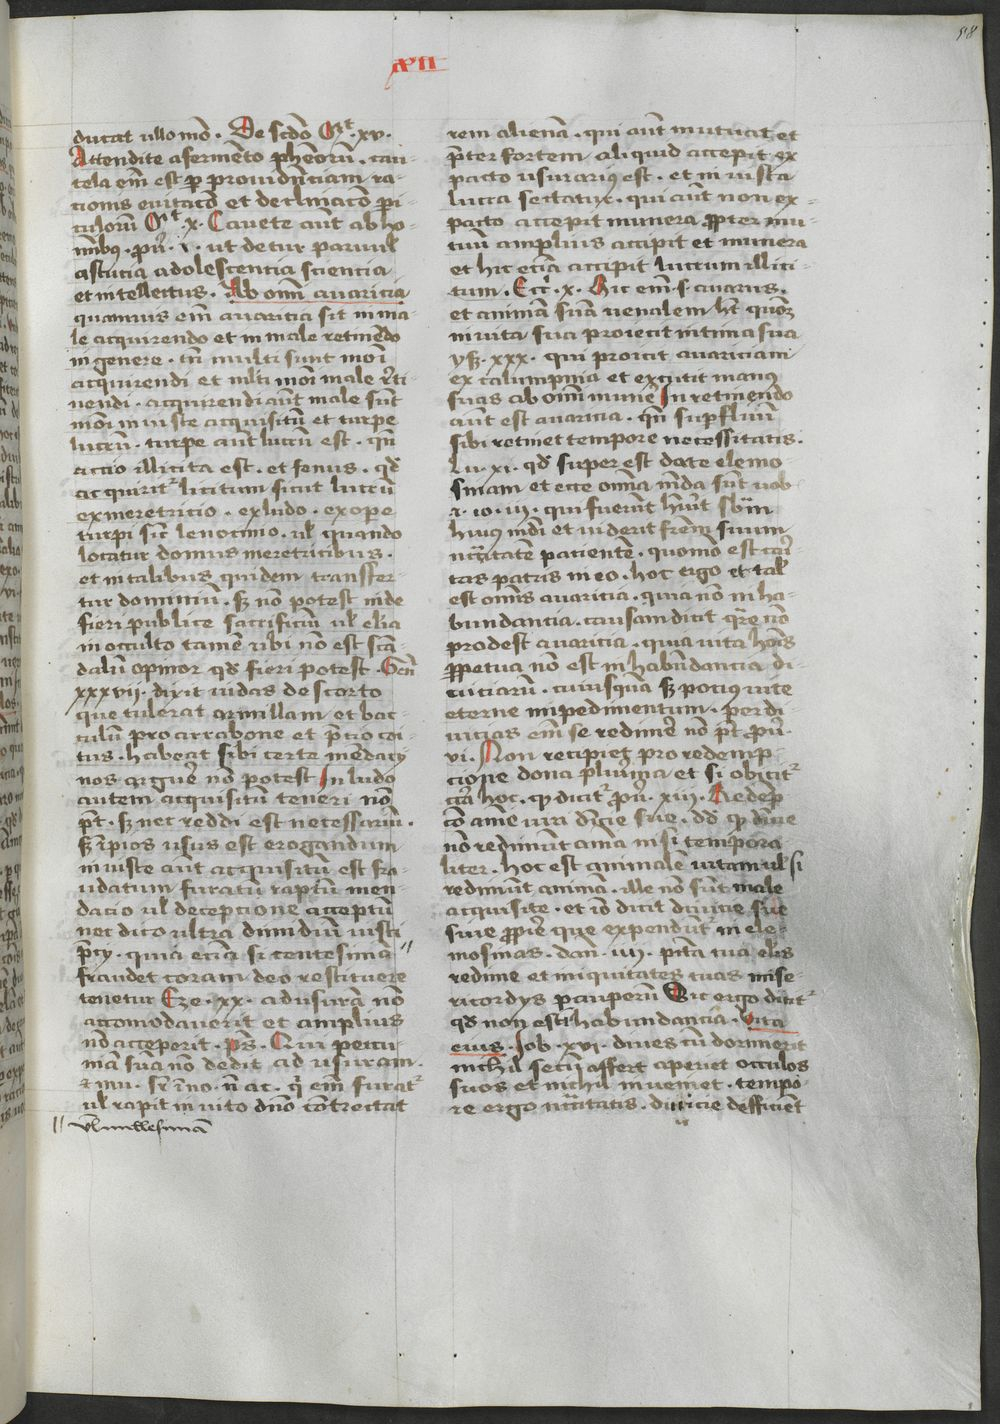 xii
58
ducat ullo mo͞. De sc͞do Mt. xv.
Attendite a fermēto ph͞eorū. cau-
tela em̄ est p providenciam ra-
cionis evitacō et declinacō pi-
culorū Mt. x. Cavete aūt ab ho-
minibꝰ. pu͞. i. ut detur parvul̄
astucia adolescencia sciencia
et intellectus. Ab omni avaricia
quamvis em̄ avaricia sit in ma-
le acquirendo et in male retinēdo
in genere. tn̄ multi sunt mo͞i
acquirendi et ml̄ti mo͞i male reti-
nendi. acquirendi aūt male sūt
mo͞i iniuste acquisitū et turpe
lucrū. turpe aūt lucrū est. qn̄
accio illicita est. et fenus. qd̄
acquirit᷑ licitum sicut lucrū
ex meretricio. ex ludo. ex ope
turpi sic̄ lenocinio. ul̄ quando
locatur domus meretricibus.
et in talibus quidem transfer-
tur dominiū. sꝫ nō potest inde
fieri publice sacrificiū ul̄ elia
in occulto tamē ubi nō est scā-
dalū opinor qd̄ fieri potest. Gen̄
xxxvii. dixit iudas de scorto
que tulerat armillam et bac-
culū pro arrabone et p̄cio coi-
tus. habeat sibi certe mēdacij
nos arguē nō potest In ludo
autem acquisitū teneri nō
pt̄. sꝫ nec reddi est necessariū.
sꝫ ī pios usus est erogandum
iniuste aūt acquisitū est fra-
udatum furatū raptū men-
dacio ul̄ decepcione acceptū
nec dico ultra dimidiū iusti
p̄cij. quia eciā si centesimā //
fraudet coram deo restituere
tenetur Eze. xx. ad usurā nō
accomodaverit et amplius
nō acceperit. ps̄. Qui pecu-
niā suā nō dedit ad usuram.
et mu. sr̄ īno. n̄ ac. qi em̄ furat᷑
ul̄ rapit invito dn̄o contrectat
// ul̄ millesimam
rem alienā. qui aūt mutuat et
pter sortem aliquid accepit ex
pacto usurarius est. et iniusta
lucra sectatur. qui aūt non ex
pacto accepit munera ppter mu-
tuū amplius accipit et munera
et hic eciā accipit lucrum illici-
tum. Ecc̄. x. Hic em̄ s. avarus.
et animā suā venalem ht̄ quoꝫ
in vita sua proiecit intima sua
ysꝫ. xxx. qui proicit avariciam
ex calumpnia et excutit manꝰ
suas ab omni munē In retinendo
aūt est avaricia. qn̄ supfluū
sibi retinet tempore necessitatis.
Lu. xi. qd̄ super est date elemo-
sinam et ecce omnia mūda sūt vob
1. io. iii. qui fuerint hn̄t sbām
huius mdi et viderit frēm suum
nccitatē pacientē. quomo͞ est cari-
tas patris in eo. hoc ergo et tale
est omnis avaricia. quia nō in ha-
bundancia. causam dicit qre nō
prodest avaricia. quia vita ho͞is
ppetua nō est in habūdancia di-
viciarū. cuiusquā sꝫ pocius vite
eterne impedimentum. per di-
vicias em̄ se redimē nō pt̄. pu͞.
vi. Non recipieꝫ pro redemp-
cione dona plurima et si obicit᷑
ctrā hoc. qp dicit᷑ pu͞. xiii. Redemp-
cō anīe viri divicie sue. dd̄ qp divicie
nō redimūt anīa nisi tempora-
liter. hoc est animalē vitam ul̄ si
redimūt anima. ille nō sūt male
acquisite. et iō dicit divicie sue
suie pprie que expendūt in ele-
mosinas. dan̄. iiii. pctā tua elīs
redime et iniquitates tuas mise-
ricordijs pauperū Sic ergo dicit᷑
qd̄ non est ī habundancia. vita
eius. Job. xvi. dives cū dormierit
nichil secū affert aperiet occulos
suos et nichil inveniet. tempo-
re ergo nccitatis. divicie defficient